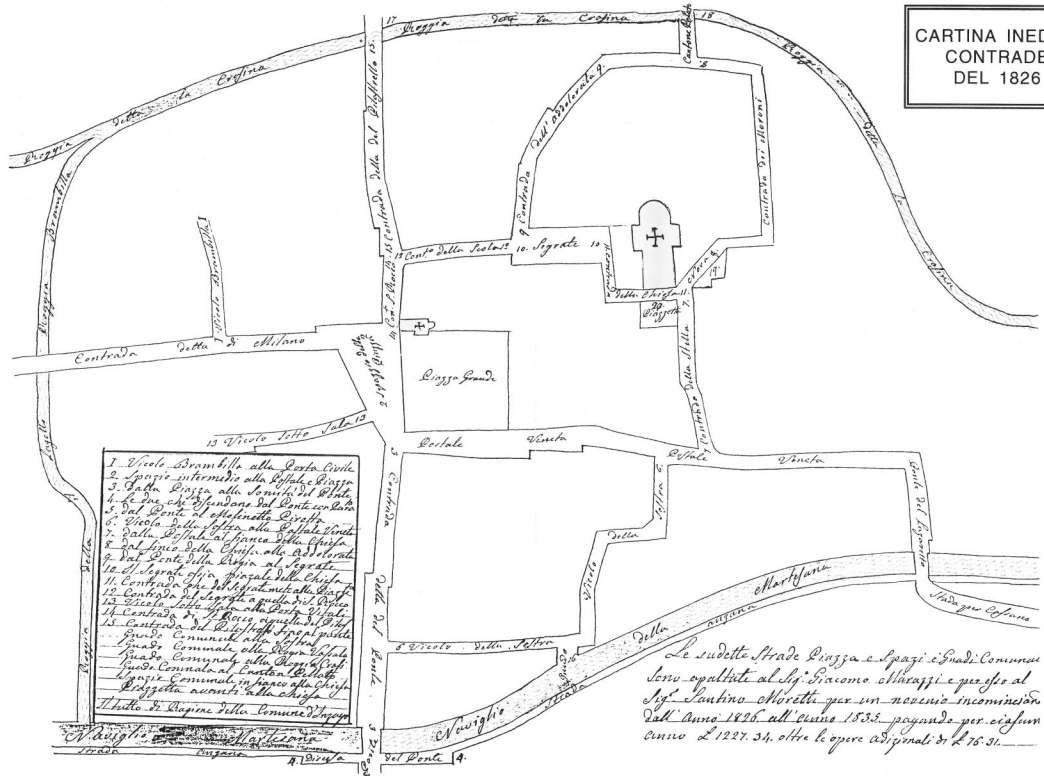 CARTINA INED
CONTRADE
DEL 1826
17
Roggia detta la Crosina
18
Roggia detta la Crosina
Roggia detta la Crosina
Roggia Brambilla
Contrada della del Pilastrello 15
Cantone Pellato
8
Contrada dell' Addolorata 9
9
Contrada dei Moroni
1 Vicolo Brambilla 1
15
14
12 Cont.a della Scola 12
10. Segrate 10
14 Cont.a S. Rocco
Contrada
della Chiesa 11
Nova 8
19
20
Piazzetta
7
Contrada detta di Milano
Piazza Grande
Contrada della Stella
7
13 Vicolo Sotto Sala 13
3
Postale Veneta
Postale
Veneta
6
Sostra
della
Vicolo
Contrada
della del
Ponte
3
6 Vicolo della Sostra
Guado 16
Naviglio della Martesana
Strada anzana
Strada per Cassano
Roggia della
1 Vicolo Brambilla alla Porta Civile
2 Spazio intermedio alla Postale e Piazza
3 Dalla Piazza alla Somità del Ponte
4. Le due che discendano dal Ponte con Zara
5. dal Ponte al Molinetto Pirotta
6. Vicolo della Sostra alla Postale Veneta
7. dalla Postale al fianco della Chiesa
8 dal fianco della Chiesa alla Addolorata
9 dal Ponte della Rogia al Segrate
10 Il Segrate ossia piazzale della Chiesa
11. Contrada che del Segrate mete alla Piazza
12 Contrada del Segrate a quella di S. Rocco
13 Vicolo Sotto Sala alla Porta Vitali
14 Contrada di S. Rocco a quella del Pilas
15 Contrada del Pilastrello fino al ponte
Guado Comunale alla Sostra
Guado Comunale alla Rogia
Guado Comunale alla Roggia Crosi
Guado Comunale al Canton Pellato
Spazio Comunale in fianco alla Chiesa
Piazzetta avanti alla Chiesa
Il tutto di Ragione della Comune d'Inzago
Naviglio Martesana
Strada anzana
4. Discesa
del Ponte 4.
Le sudette Strade Piazza e Spazi e Guadi Comunali
sono apaltate al Sig.r Giacomo Marazzi e per esso al
Sig.r Santino Moretti per un novenio incominciando
dall' Anno 1826 all' anno 1835 pagando per ciascun
anno L 1227.34. oltre le opere adizionali di L 76.31.